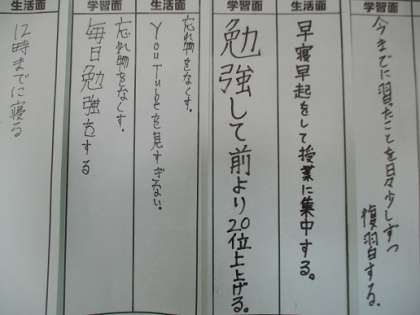 学習面
今までに習ったことを日々少しずつ
復習する。
生活面
早寝早起をして授業に集中する。
学習面
勉強して前より20位上上げる。
生活面
忘れ物をなくす。
YouTubeを見すぎない。
学習面
忘れ物をなくす。
毎日勉強をする
生活面
12時までに寝る